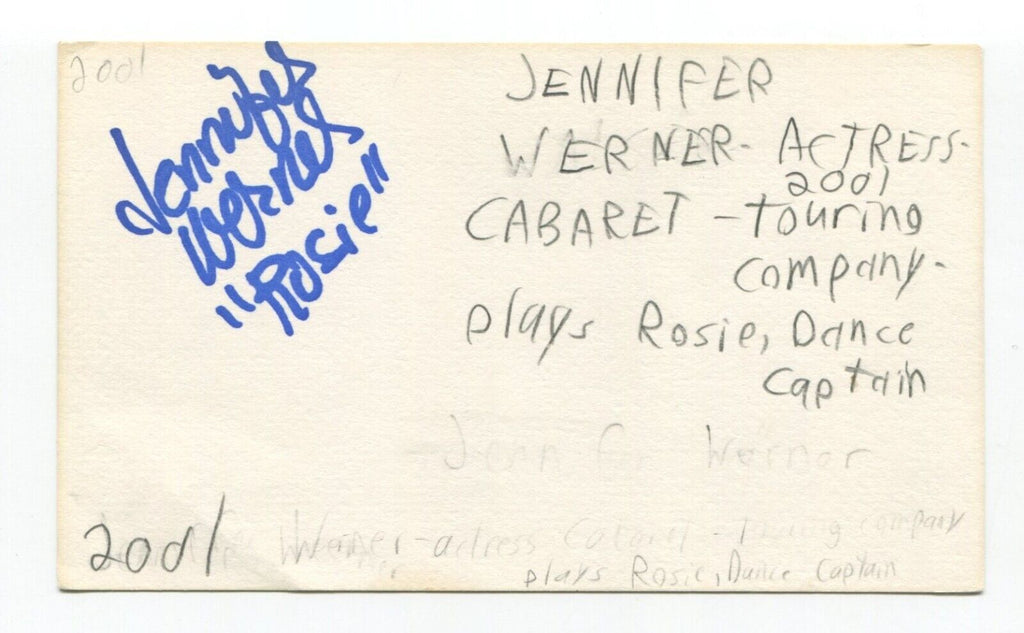 2001
Jennifer
Werner
"Rosie"
JENNIFER
WERNER- ACTRESS-
2001
CABARET - touring
company-
plays Rosie, Dance
Captain
Jennifer Werner
2001
Werner - actress Cabaret - touring company
plays Rosie, Dance Captain